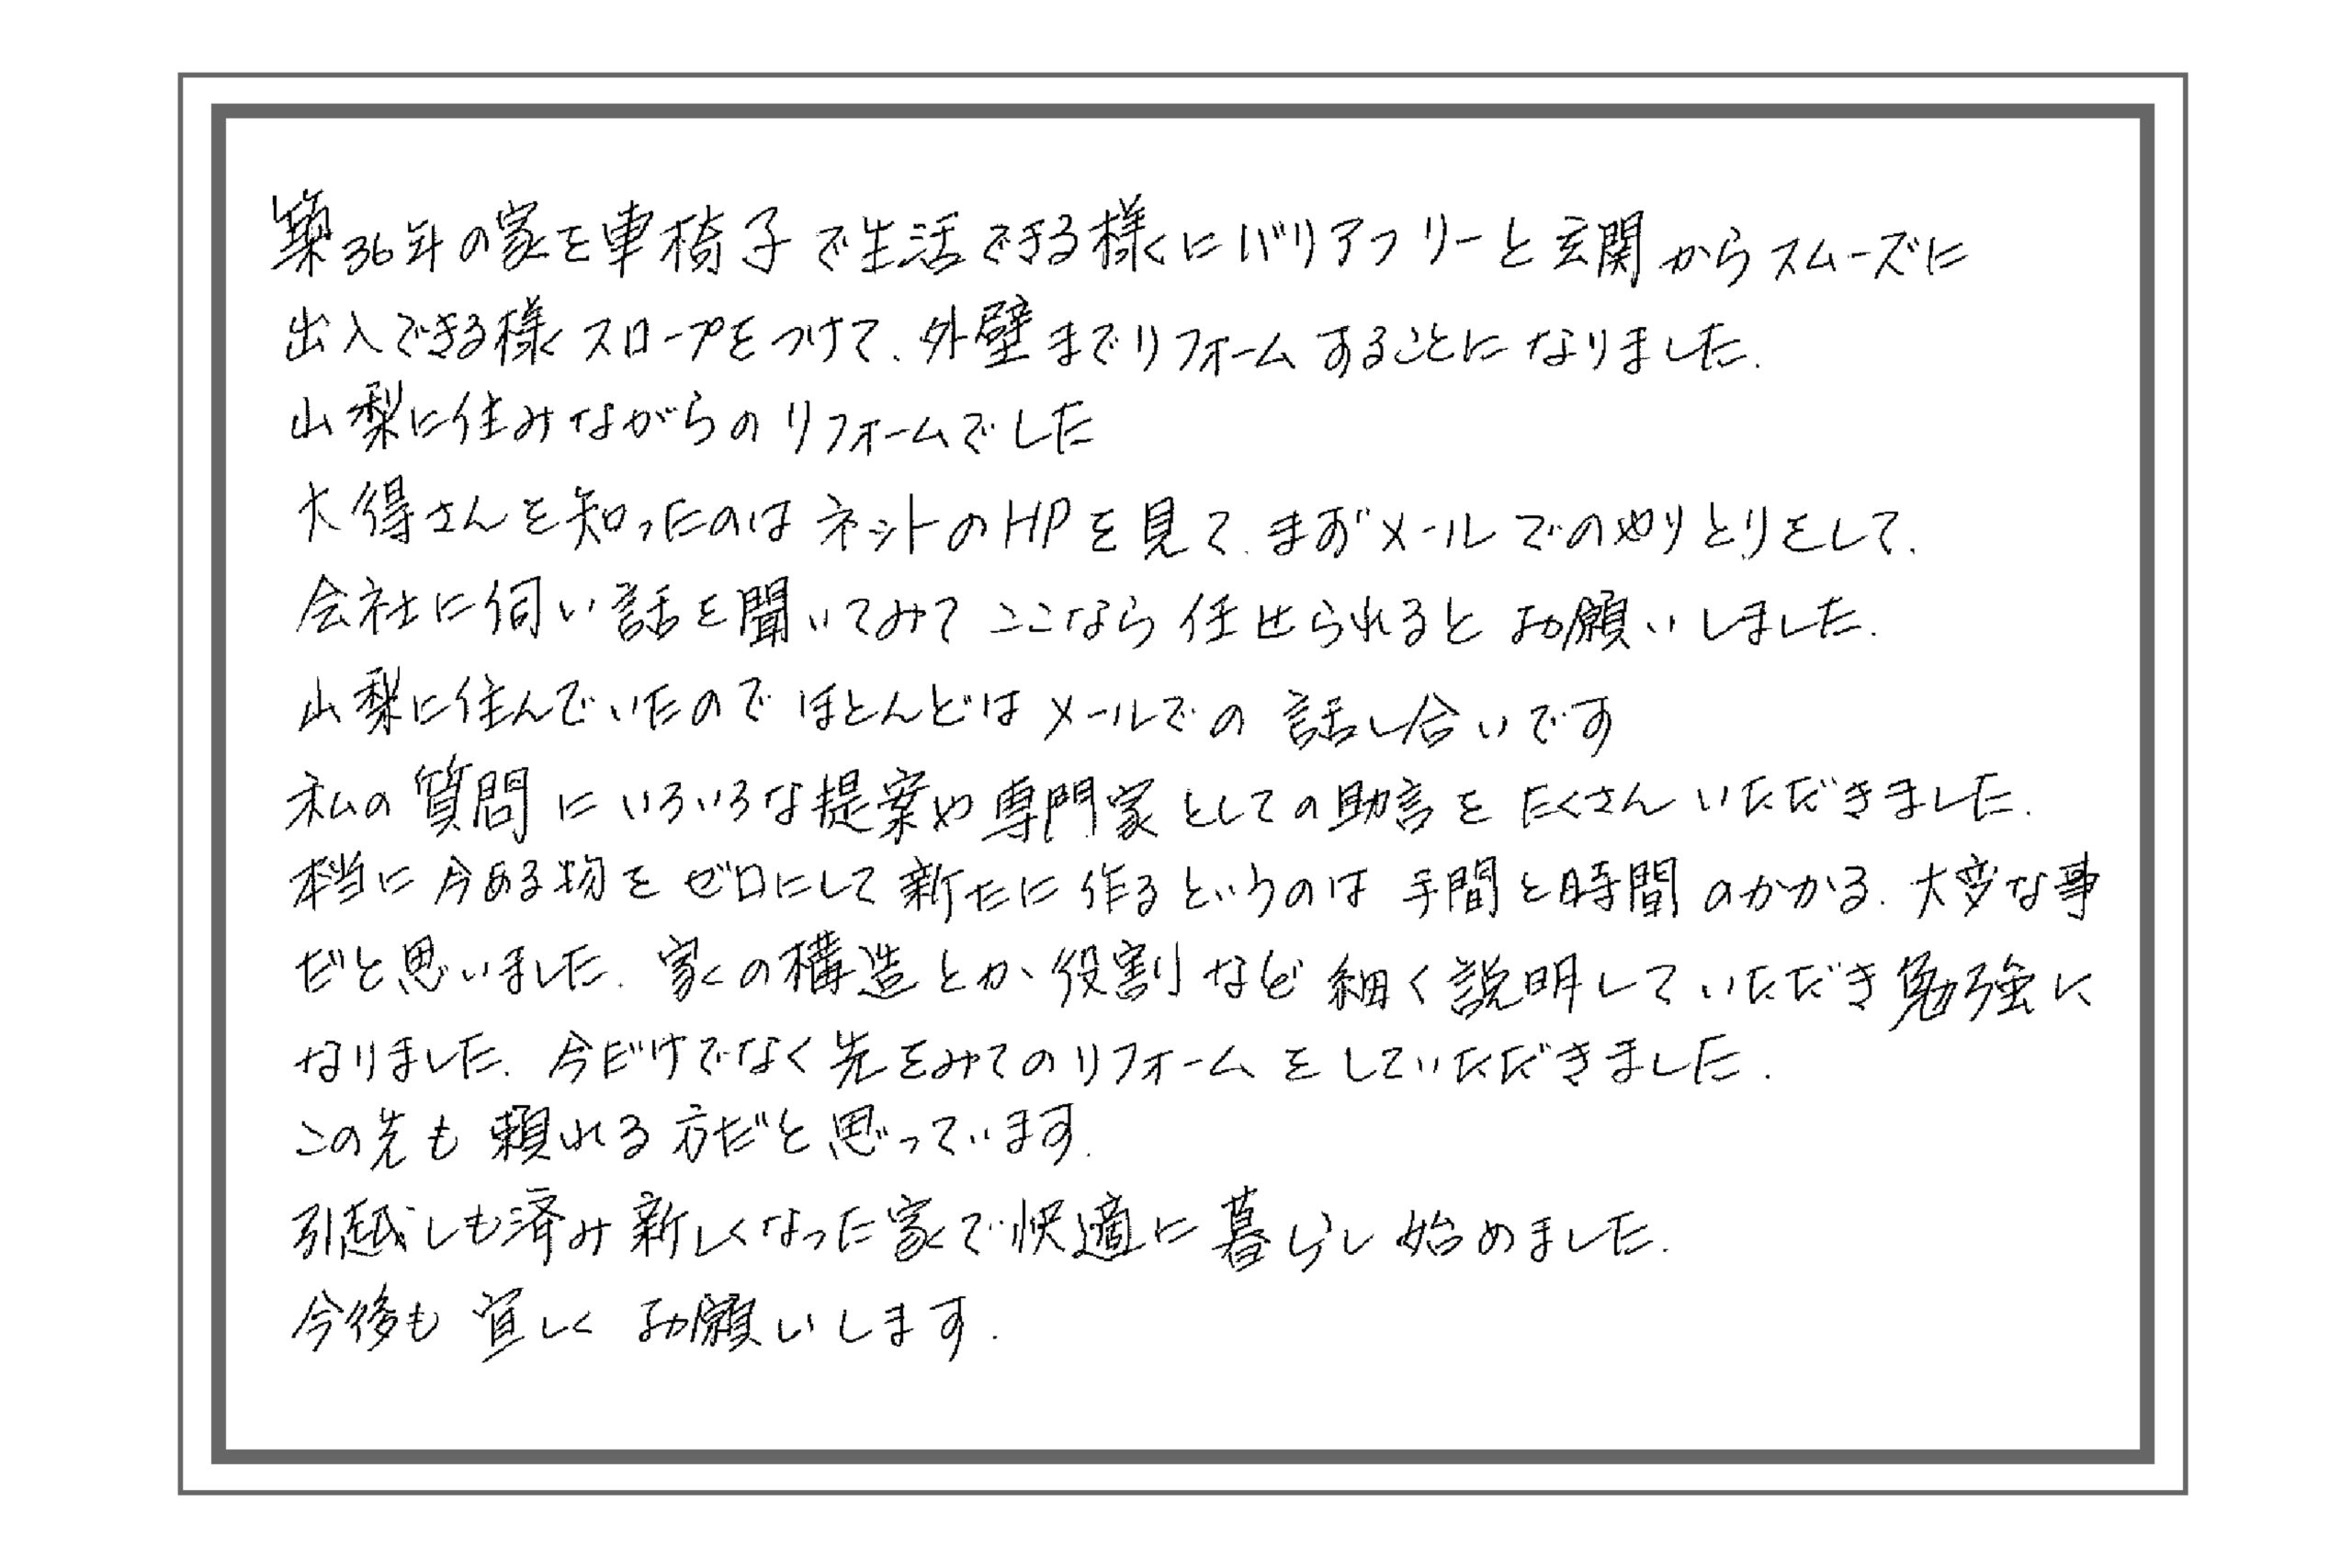 築36年の家を車椅子で生活できる様にバリアフリーと玄関からスムーズに
出入できる様スロープをつけて、外壁までリフォームすることになりました.
山梨に住みながらのリフォームでした
大得さんを知ったのはネットのHPを見て、まずメールでのやりとりをして、
会社に伺い話を聞いてみてここなら任せられるとお願いしました.
山梨に住んでいたのでほとんどはメールでの話し合いです
私の質問にいろいろな提案や専門家としての助言をたくさんいただきました.
本当に今ある物をゼロにして新たに作るというのは手間と時間のかかる、大変な事
だと思いました. 家の構造とか役割など細く説明していただき勉強に
なりました. 今だけでなく先をみてのリフォームをしていただきました.
この先も頼れる方だと思っています.
引越しも済み新しくなった家で快適に暮らし始めました.
今後も宜しくお願いします.